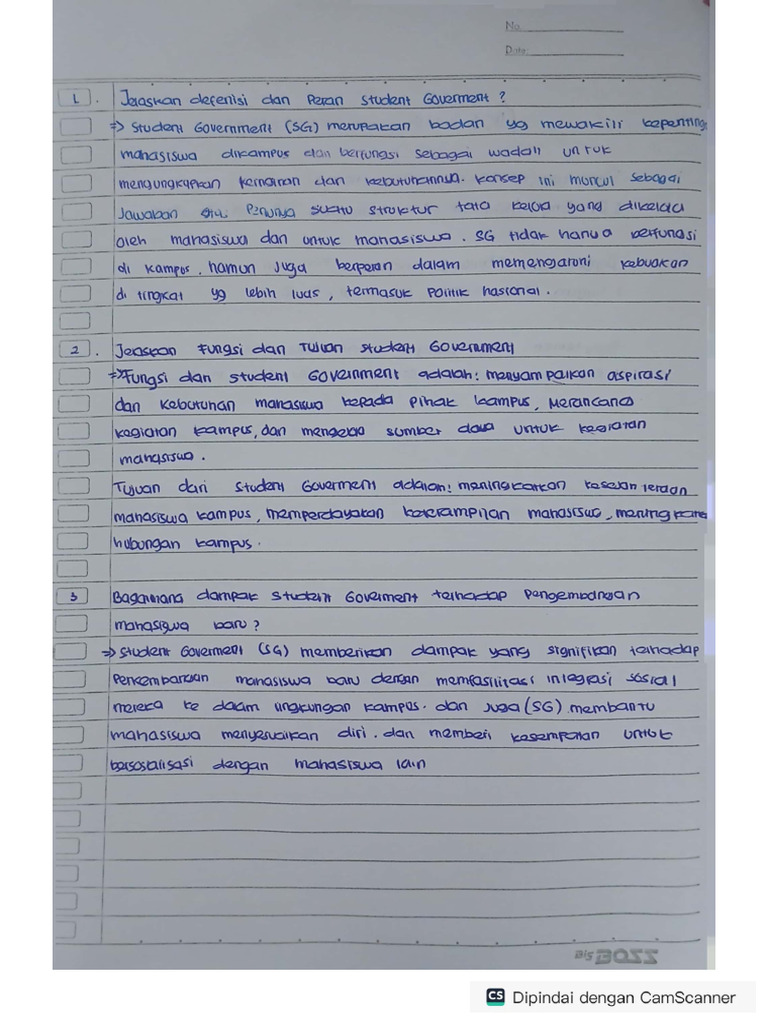 No.
Date.
1. Jelaskan defenisi dan Peran Student Goverment ?
=> Student Government (SG) merupakan badan yg mewakili kepenting
mahasiswa dikampus dan berfungsi sebagai wadah untuk
mengungkapkan dan kebutuhannya. konsep ini muncul sebagai
Jawaban perlunya suatu struktur tata kelola yang dikelola
oleh mahasiswa dan untuk mahasiswa. SG tidak hanya berfungsi
di kampus, namun juga berperan dalam memengaruhi kebijakan
di tingkat yg lebih luas, termasuk politik nasional.
2. Jelaskan Fungsi dan Tujuan Student Government
=> Fungsi dan student Government adalah: menyampaikan aspirasi
dan kebutuhan mahasiswa kepada pihak kampus, Merancang
kegiatan kampus, dan mengelola sumber daya untuk kegiatan
mahasiswa.
Tujuan dari student Goverment adalah: meningkatkan kesejahteraan
mahasiswa kampus, memperdayakan keterampilan mahasiswa, meningkatka
hubungan kampus.
3 Bagaimana dampak Student Goverment terhadap Pengembangan
mahasiswa baru?
=> Student Goverment (SG) memberikan dampak yang signifikan terhadap
Perkembangan mahasiswa baru dengan memfasilitasi integrasi sosial
mereka ke dalam lingkungan kampus. dan Juga (SG) membantu
mahasiswa menyesuaikan diri. dan memberi kesempatan untuk
bersosialisasi dengan mahasiswa lain
Big BOSS
CS Dipindai dengan CamScanner